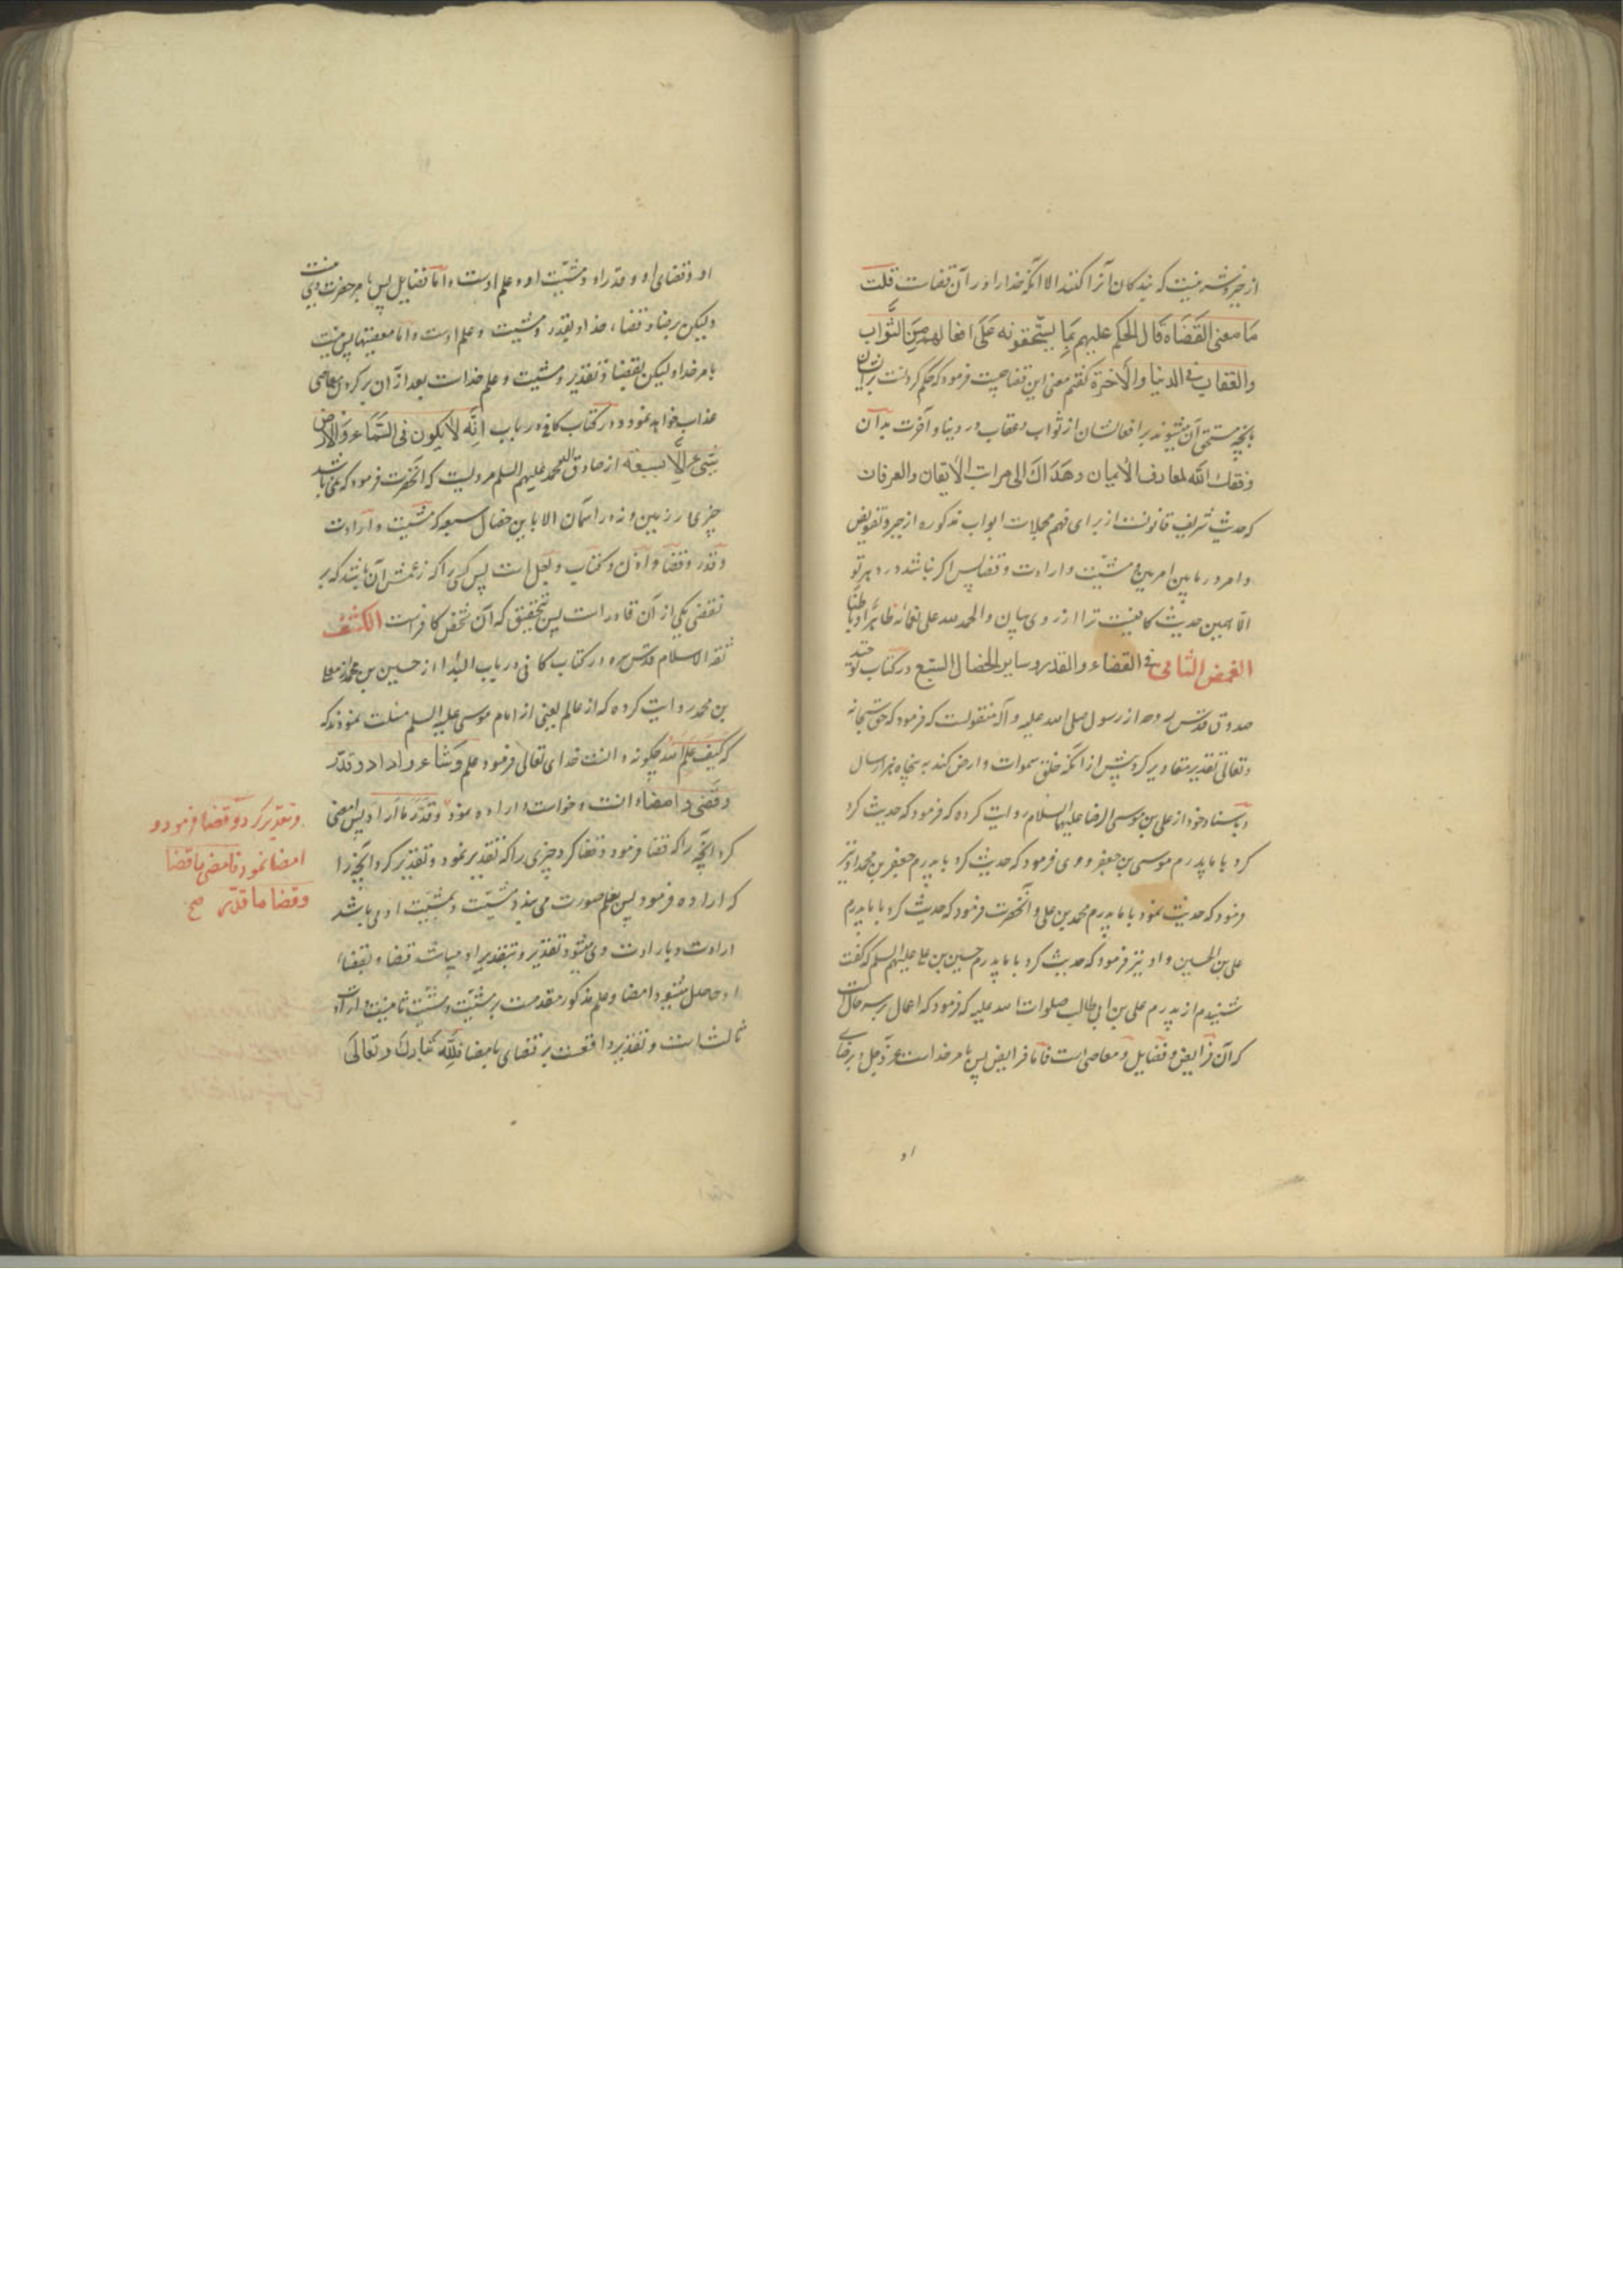 از خیر و شر نیست که بندگان آنرا کنند الا آنکه خدا را در آن قضاست قلت
مَا معنی القَضَاء قَال الحکم علیهم بِمَا یستّحقونه عَلَی افعالهم مِنَ الثَّواب
والعقاب فی الدنیا والأخِرَة گفتم معنی این قضا چیست فرمود که حکم کردنست برایشان
بآنچه مستحق آن میشوند بر افعالشان از ثواب و عقاب در دنیا و آخرت بدان
وفقك الله لمعارف الأیمان وهَدَاكَ الی مراتب الأیقان والعرفان
که حدیث شریف قانونست از برای فهم مجملات ابواب مذکوره از جبر و تفویض
و امر در ما بین امرین و مشیّت و ارادت و قضا پس اگر نباشد در دهر تو
الّا همین حدیث کافیست ترا از روی بیان و الحمد لله علی نعمائه ظاهراً و باطناً
الغمض الثانی فی القضاء والقدر وسایر الخصال السّبع در کتاب توحید
صدوق قدّس روحه از رسول صلی الله علیه و آله منقولست که فرمود که حق سبحانه
و تعالی تقدیر مقادیر کرد پیش از آنکه خلق سموات و ارض کند به پنجاه هزار سال
و باسناد خود از علی بن موسی الرضا علیهما السلام روایت کرده که فرمود که حدیث کرد
کرد با ما پدرم موسی بن جعفر و وی فرمود که حدیث کرد با پدرم جعفر بن محمد او نیز
فرمود که حدیث نمود با ما پدرم محمد بن علی و آنحضرت فرمود که حدیث کرد با ما پدرم
علی بن الحسین و او نیز فرمود که حدیث کرد با ما پدرم حسین بن علی علیهم السلم که گفت
شنیدم از پدرم علی بن ابی طالب صلوات الله علیه که فرمود که اعمال بر سه حال است
که آن فرایض و فضایل و معاصی است فامّا فرایض پس بامر خداست عز و جل و برضای
او
او و قضای او و قدر او و مشیّت او و علم اوست و امّا فضایل پس بامر حضرت وی نیست
ولیکن برضا و قضاء خدا و بقدر و مشیت و علم اوست و اما معصیتها پس نیست
بامر خدا و لیکن بقضا و تقدیر و مشیت و علم خداست بعد از آن بر کردن معاصی
عذاب خواهد نمود و در کتاب کافی در باب انّه لَا یکون فی السّمَاء وَالأرض
شیء الّا بسبعة از صادق آل محمد علیهم السلم مرویست که آنحضرت فرمود که نمی باشد
چیزی در زمین و نه در آسمان الا باین خصال سبعه که مشیّت و ارادت
و قدر و قضا و اذن و کتاب و اجل است پس کسی را که زعمش آن باشد که بر
نقض یکی از آن قادر است پس بتحقیق که آن شخص کافر است الکشف
ثقة الاسلام قدّس سره در کتاب کافی در باب البداء از حسین بن محمد از معلی
بن محمد روایت کرده که از عالم یعنی از امام موسی علیه السلم مسئلت نمودند که
که کیف عَلِمَ الله چگونه دانست خدای تعالی فرمود علم وَشَاء و اراد و قدّر
و قضی و امضاء دانست و خواست و اراده نمود و قدّر ما اراد پس امضی
کرد آنچه را که قضا فرمود و قضا کرد چیزی را که تقدیر نمود و تقدیر کرد آنچه را
که اراده فرمود پس بعلم صورت می بندد مشیّت و بمشیّت او می باشد
ارادت و بارادت وی میشود تقدیر و بتقدیر او میباشد قضا و بقضاء
او حاصل میشود امضا و علم مذکور مقدمست بر مشیّت و مشیّت ثانیست و ارادت
ثالث است و تقدیر واقعست بر قضای بامضا فلِلّه تبارك وتعالیٰ
و تقدیر کرد و قضا فرمود و
امضا نمود فامضی ما قضا
وقضا ما قدّر صح